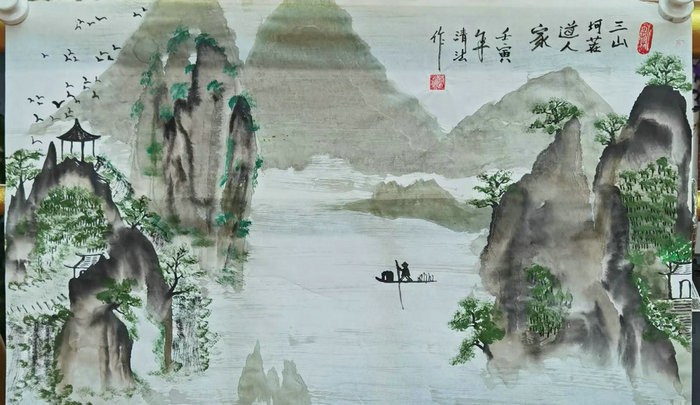 三山
坷茬
道人
家
壬寅
年
清法
作